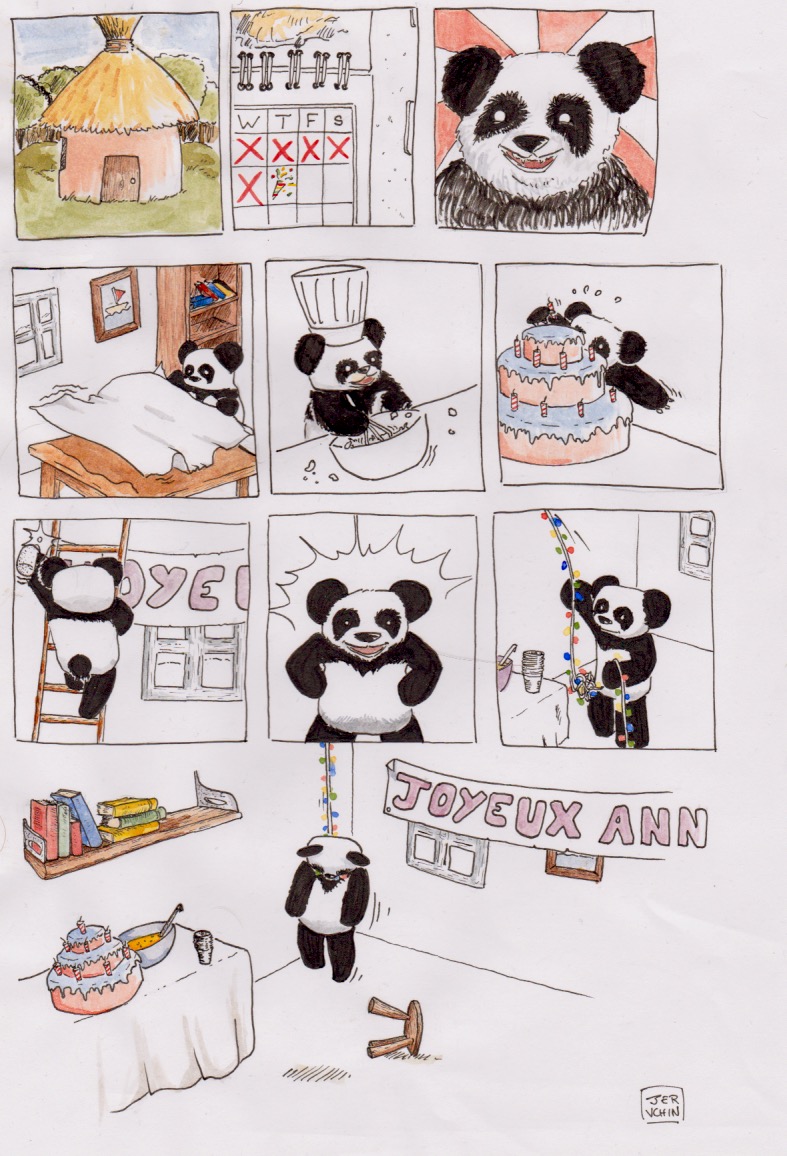 W T F S
OYEU
JOYEUX ANN
JER
VCHIN